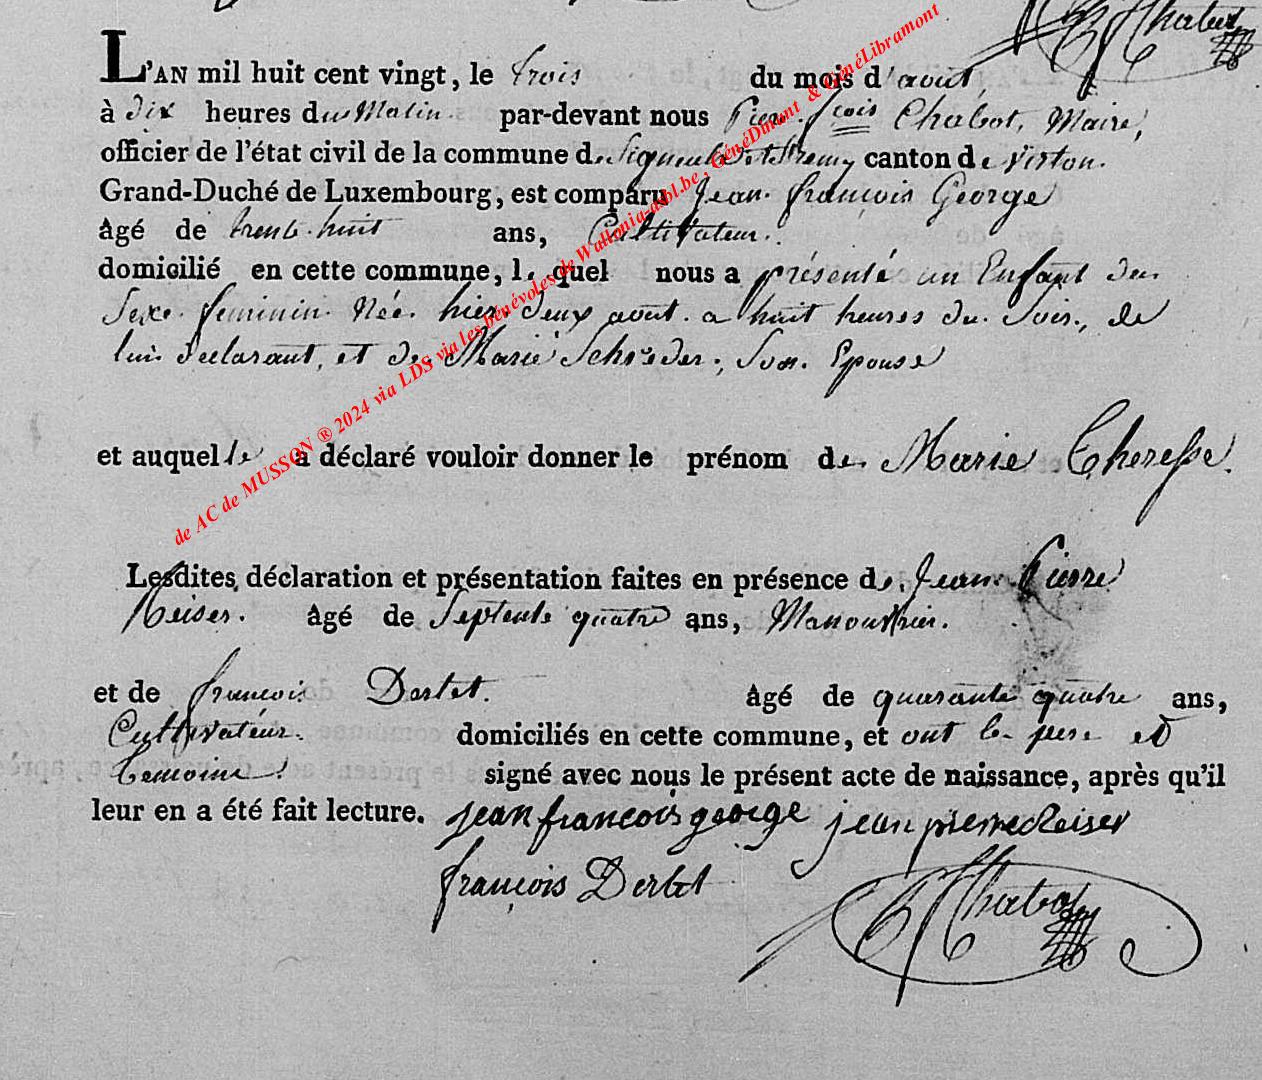 Chabot
L'AN mil huit cent vingt, le trois du mois d'aout,
à dix heures du Matin. par-devant nous Pierre fcois Chabot, Maire,
officier de l'état civil de la commune de Signeulx canton de Virton.
Grand-Duché de Luxembourg, est comparu Jean françois George
âgé de trente-huit ans, Cultivateur.
domicilié en cette commune, le quel nous a présenté un Enfant du
Sexe feminin Née hier deux aout a huit heures du Soir, de
lui déclarant, et de Marie Schreder, Son Epouse
et auquel le a déclaré vouloir donner le prénom de Marie Theresse.
Lesdites déclaration et présentation faites en présence de Jean Pierre
Reiser. âgé de Septente quatre ans, Manouvrier.
et de francois Dertet. âgé de quarante quatre ans,
Cultivateur. domiciliés en cette commune, et ont le pere et
temoins signé avec nous le présent acte de naissance, après qu'il
leur en a été fait lecture. jean francois george jean pierre Reiser
françois Dertet
Chabot
de AC de MUSSON ® 2024 via LDS via les bénévoles de Wallonia-asbl.be, GénéDinant & GénéLibramont